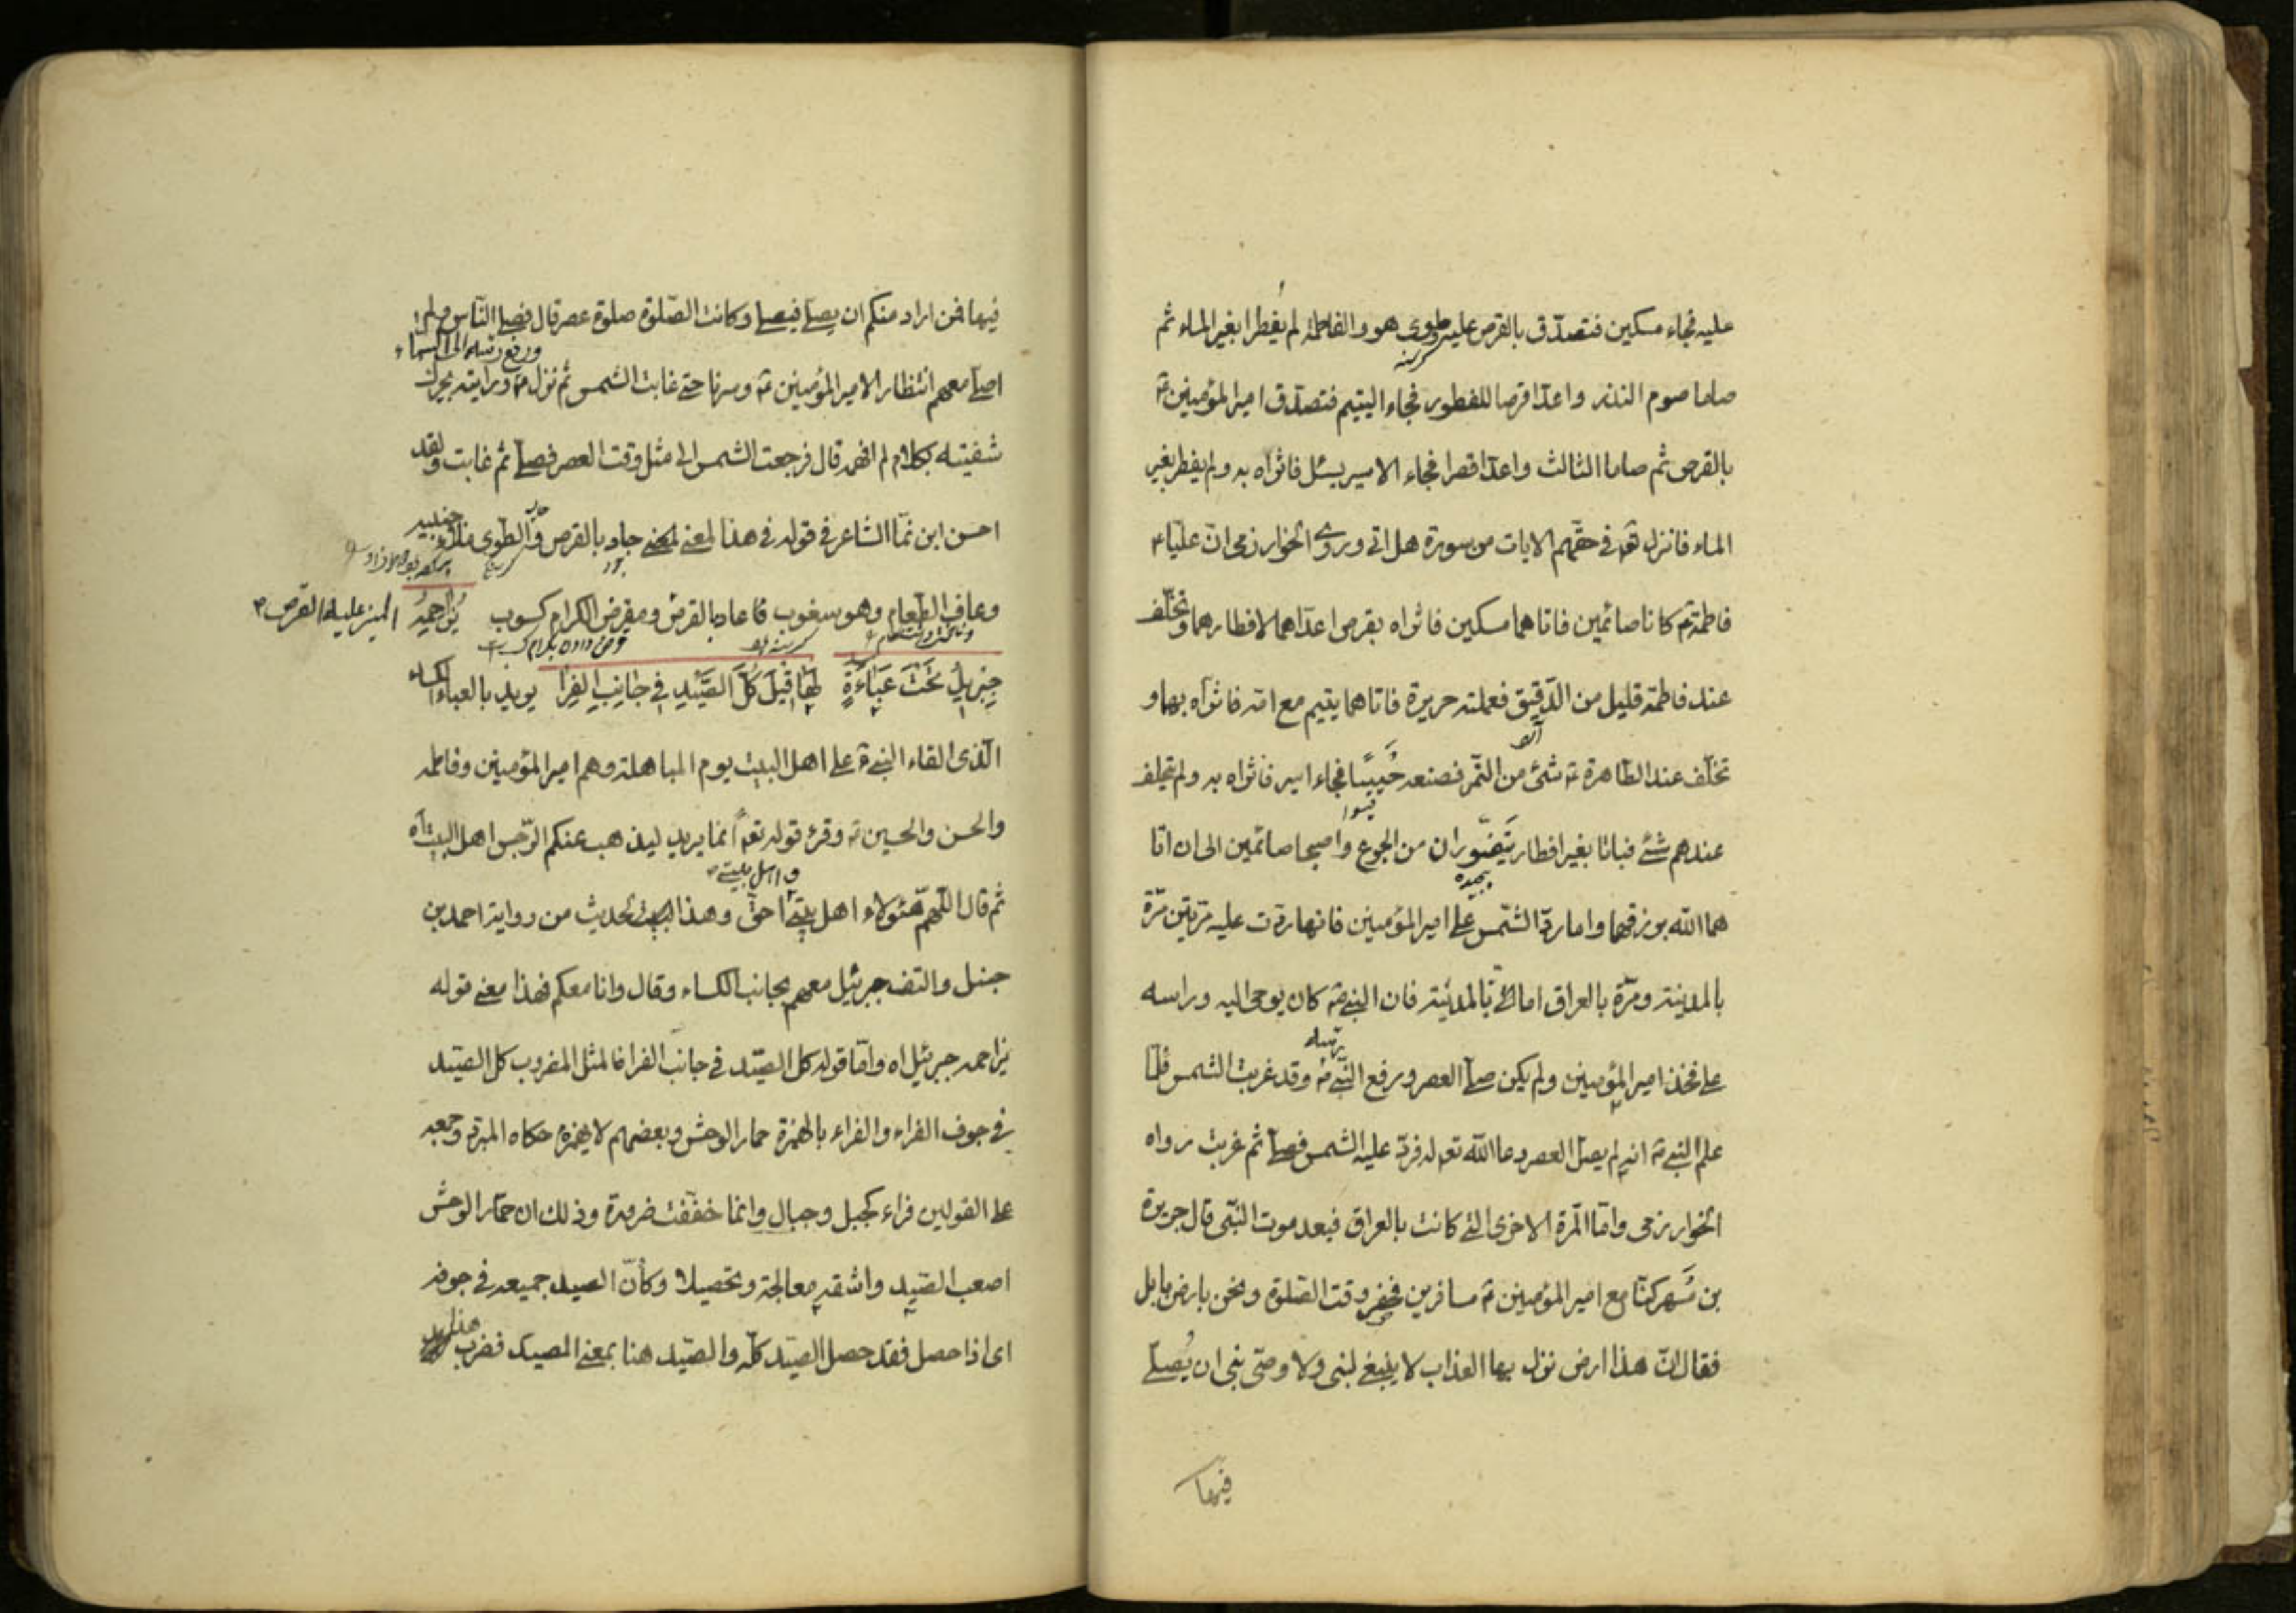 عليه فجاء مسكين فتصدّق بالقرص عليه وطوى هو والفاطمة لم يُفطرا بغير الماء ثم
صاما صوم النذر واعدّا قرصا للفطور فجاء اليتيم فتصدّق امير المؤمنين ع
بالقرص ثم صاما الثالث واعدّا قرصا فجاء الاسير يسئل فاثراه به ولم يفطر بغير
الماء فانزل تعالى فى حقّهم الايات من سورة هل اتى وروى الخوارزمى انّ عليّا ع
فاطمة ع كانا صائمين فاتاهما مسكين فاثراه بقرص اعدّاهما لافطارهما وتخلّف
عند فاطمة قليل من الدّقيق فعملته حريرة فاتاهما يتيم مع امّه فاثراه بها و
تخلّف عند الطّاهرة ع شئ من التّمر فصنعه خَبيصًا فجاء اسير فاثراه به ولم يتخلف
عندهم شئ فباتا بغير افطار يَتَضَوّران من الجوع واصبحا صائمين الى ان اتا
هما الله برزقهما واما ردّ الشّمس على امير المؤمنين فانها ردّت عليه مرّتين مرّة
بالمدينة ومرّة بالعراق اما التى بالمدينة فان النبى ص كان يوحى اليه وراسه
على فخذ امير المؤمنين ولم يكن صلّى العصر ورفع النّبى ص وقد غربت الشمس فلمّا
علم النبى ص انه لم يصلّ العصر دعا الله تعالى له فردّ عليه الشمس فصلّى ثم غربت رواه
الخوارزمى وامّا المرّة الاخرى التى كانت بالعراق فبعد موت النّبى قال جويرة
بن مَسهر كنّا مع امير المؤمنين ع مسافرين فحضر وقت الصّلوة ونحن بارض بابل
فقال انّ هذا ارض نزل بها العذاب لا ينبغى لنبى ولا وصّى نبى ان يُصلّى
فيها
فيها فمن اراد منكم ان يصلّى فيصلى وكانت الصّلوة صلوة عصر قال فصلى النّاس ولم
ورفع راسه الى السماء
اصلّ معهم انتظارا لامير المؤمنين ع وسرنا حتى غابت الشمس ثم نزل ع ورايته يحرك
شفيته بكلام لم افهمه قال فرجعت الشمس الى مثل وقت العصر فصلّى ثم غابت ولقد
احسن ابن نمّا الشاعر فى قوله فى هذا المعنى جاد بالقرص والطّوى ملأ جنبيه
وعاف الطّعام وهو سغوب فاعاد بالقرص ومقرض الكرام كسوب يزاحمه المنير عليه القرص
جبريل تَحْتَ عَبَاءَةٍ لَها قيلَ كُلّ الصّيْدِ فى جانِبِ الفِرا يريد بالعباءة الكساء
الّذى القاه النبى ص على اهل البيت يوم المباهلة وهم امير المؤمنين وفاطمه
والحسن والحسين ع وقرئ قوله تعالى انّما يريد ليذهب عنكم الرّجس اهل البيت آه
ثم قال اللّهمّ هئولاء اهل بيتى احقّ وهذا البيت لحديث من رواية احمد بن
حنبل والتف جبرئيل معهم بجانب الكساء وقال وانا معكم فهذا معنى قوله
يزاحمه جبرئيل اه وامّا قوله كل الصّيد فى جانب الفرا فالمثل المضروب كل الصّيد
فى جوف الفراء والفراء بالهمزة حمار الوحش وبعضهم لا يهمزه حكاه المبرّد وجمعه
على القولين فراء كجبل وجبال وانما خفّفت ضرورة وذلك ان حمّار الوحش
اصعب الصّيد واشقه معالجة وتحصيلا وكأنّ الصيد جميعه فى جوفه
اى اذا حصل فقد حصل الصيّد كلّه والصّيد هنا بمعنى المصيد فضرب هذا